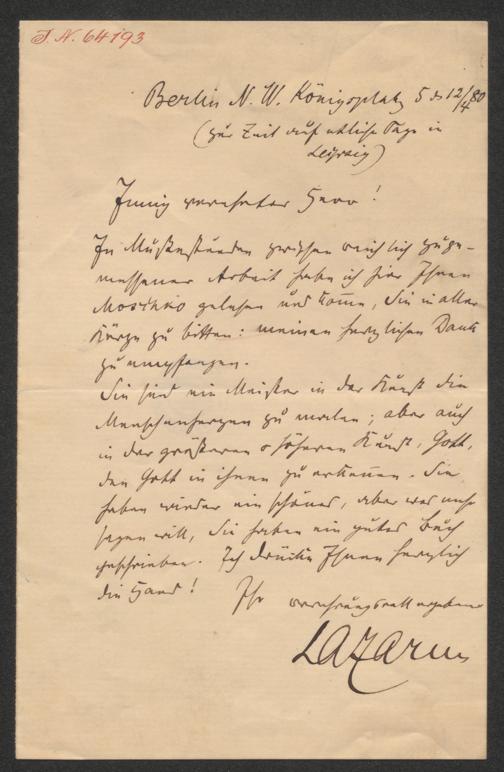 J. N. 64193
Berlin N. W. Königsplatz 5 d. 12/4 80
(zur Zeit auf etliche Tage in
Leipzig)
Innig verehrter Herr!
In Mußestunden zwischen reichlich zuge-
messener Arbeit habe ich hier Ihren
Moschko gelesen und komme, Sie in aller
Kürze zu bitten: meinen herzlichen Dank
zu empfangen.
Sie sind ein Meister in der Kunst die
Menschenherzen zu malen; aber auch
in der größeren u höheren Kunst, Gott,
den Gott in ihnen zu erkennen. Sie
haben wieder ein schönes, aber was mehr
sagen will, Sie haben ein gutes Buch
geschrieben. Ich drücke Ihnen herzlich
die Hand!
Ihr verehrungsvoll ergebener
Lazarus